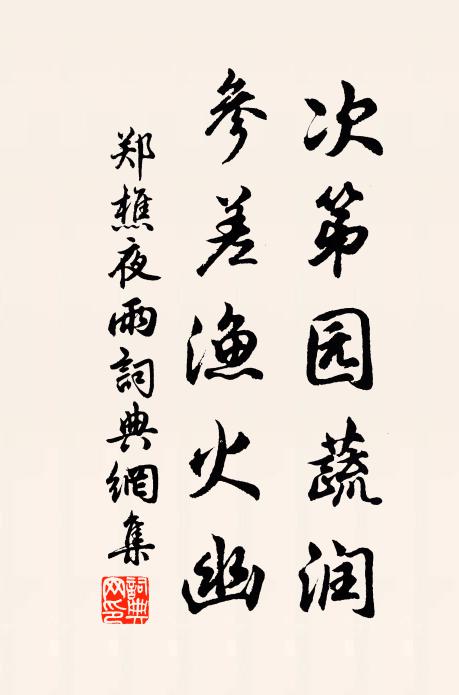 次第园蔬润
參差渔火幽
郑樵夜雨詞典網集
詞典网印